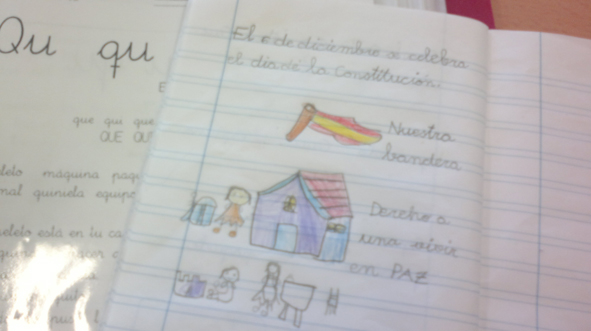 Qu qu
que qui que
QUE QUI
máquina
quiniela equipo
está en tu ca
El 6 de diciembre se celebra
el día de la Constitución.
Nuestra
bandera
Derecho a
una vivir
en PAZ